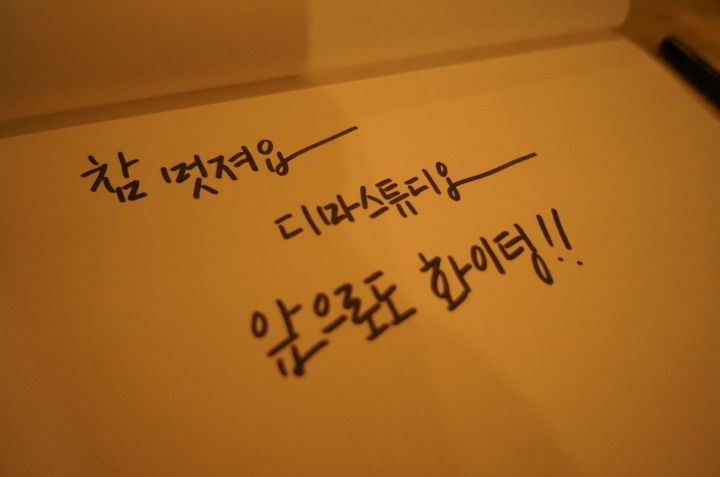 참 멋져요
디마스튜디오
앞으로도 화이팅!!